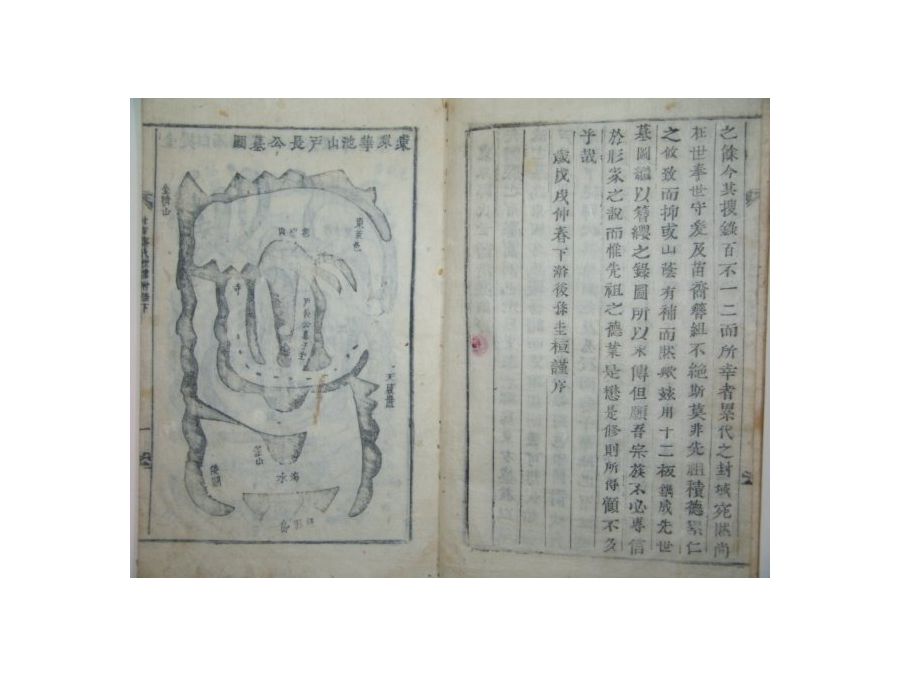 之餘今其搜錄百不一二而所幸者累代之封域宛然尚
在世奉世守爰及苗裔簪組不絶斯莫非先祖積德累仁
之攸致而抑或山蔭有補而然歟玆用十二板鐫成先世
墓圖繼以簪纓之錄圖所以永傳但願吾宗族不必專信
於形家之說而惟先祖之德業是懋是修則所得顧不多
乎哉
歲戊戌仲春下澣後孫圭桓謹序
東萊華池山戶長公墓圖
東萊邑
金湧山
寺
戶長公墓子坐
天
海水
島